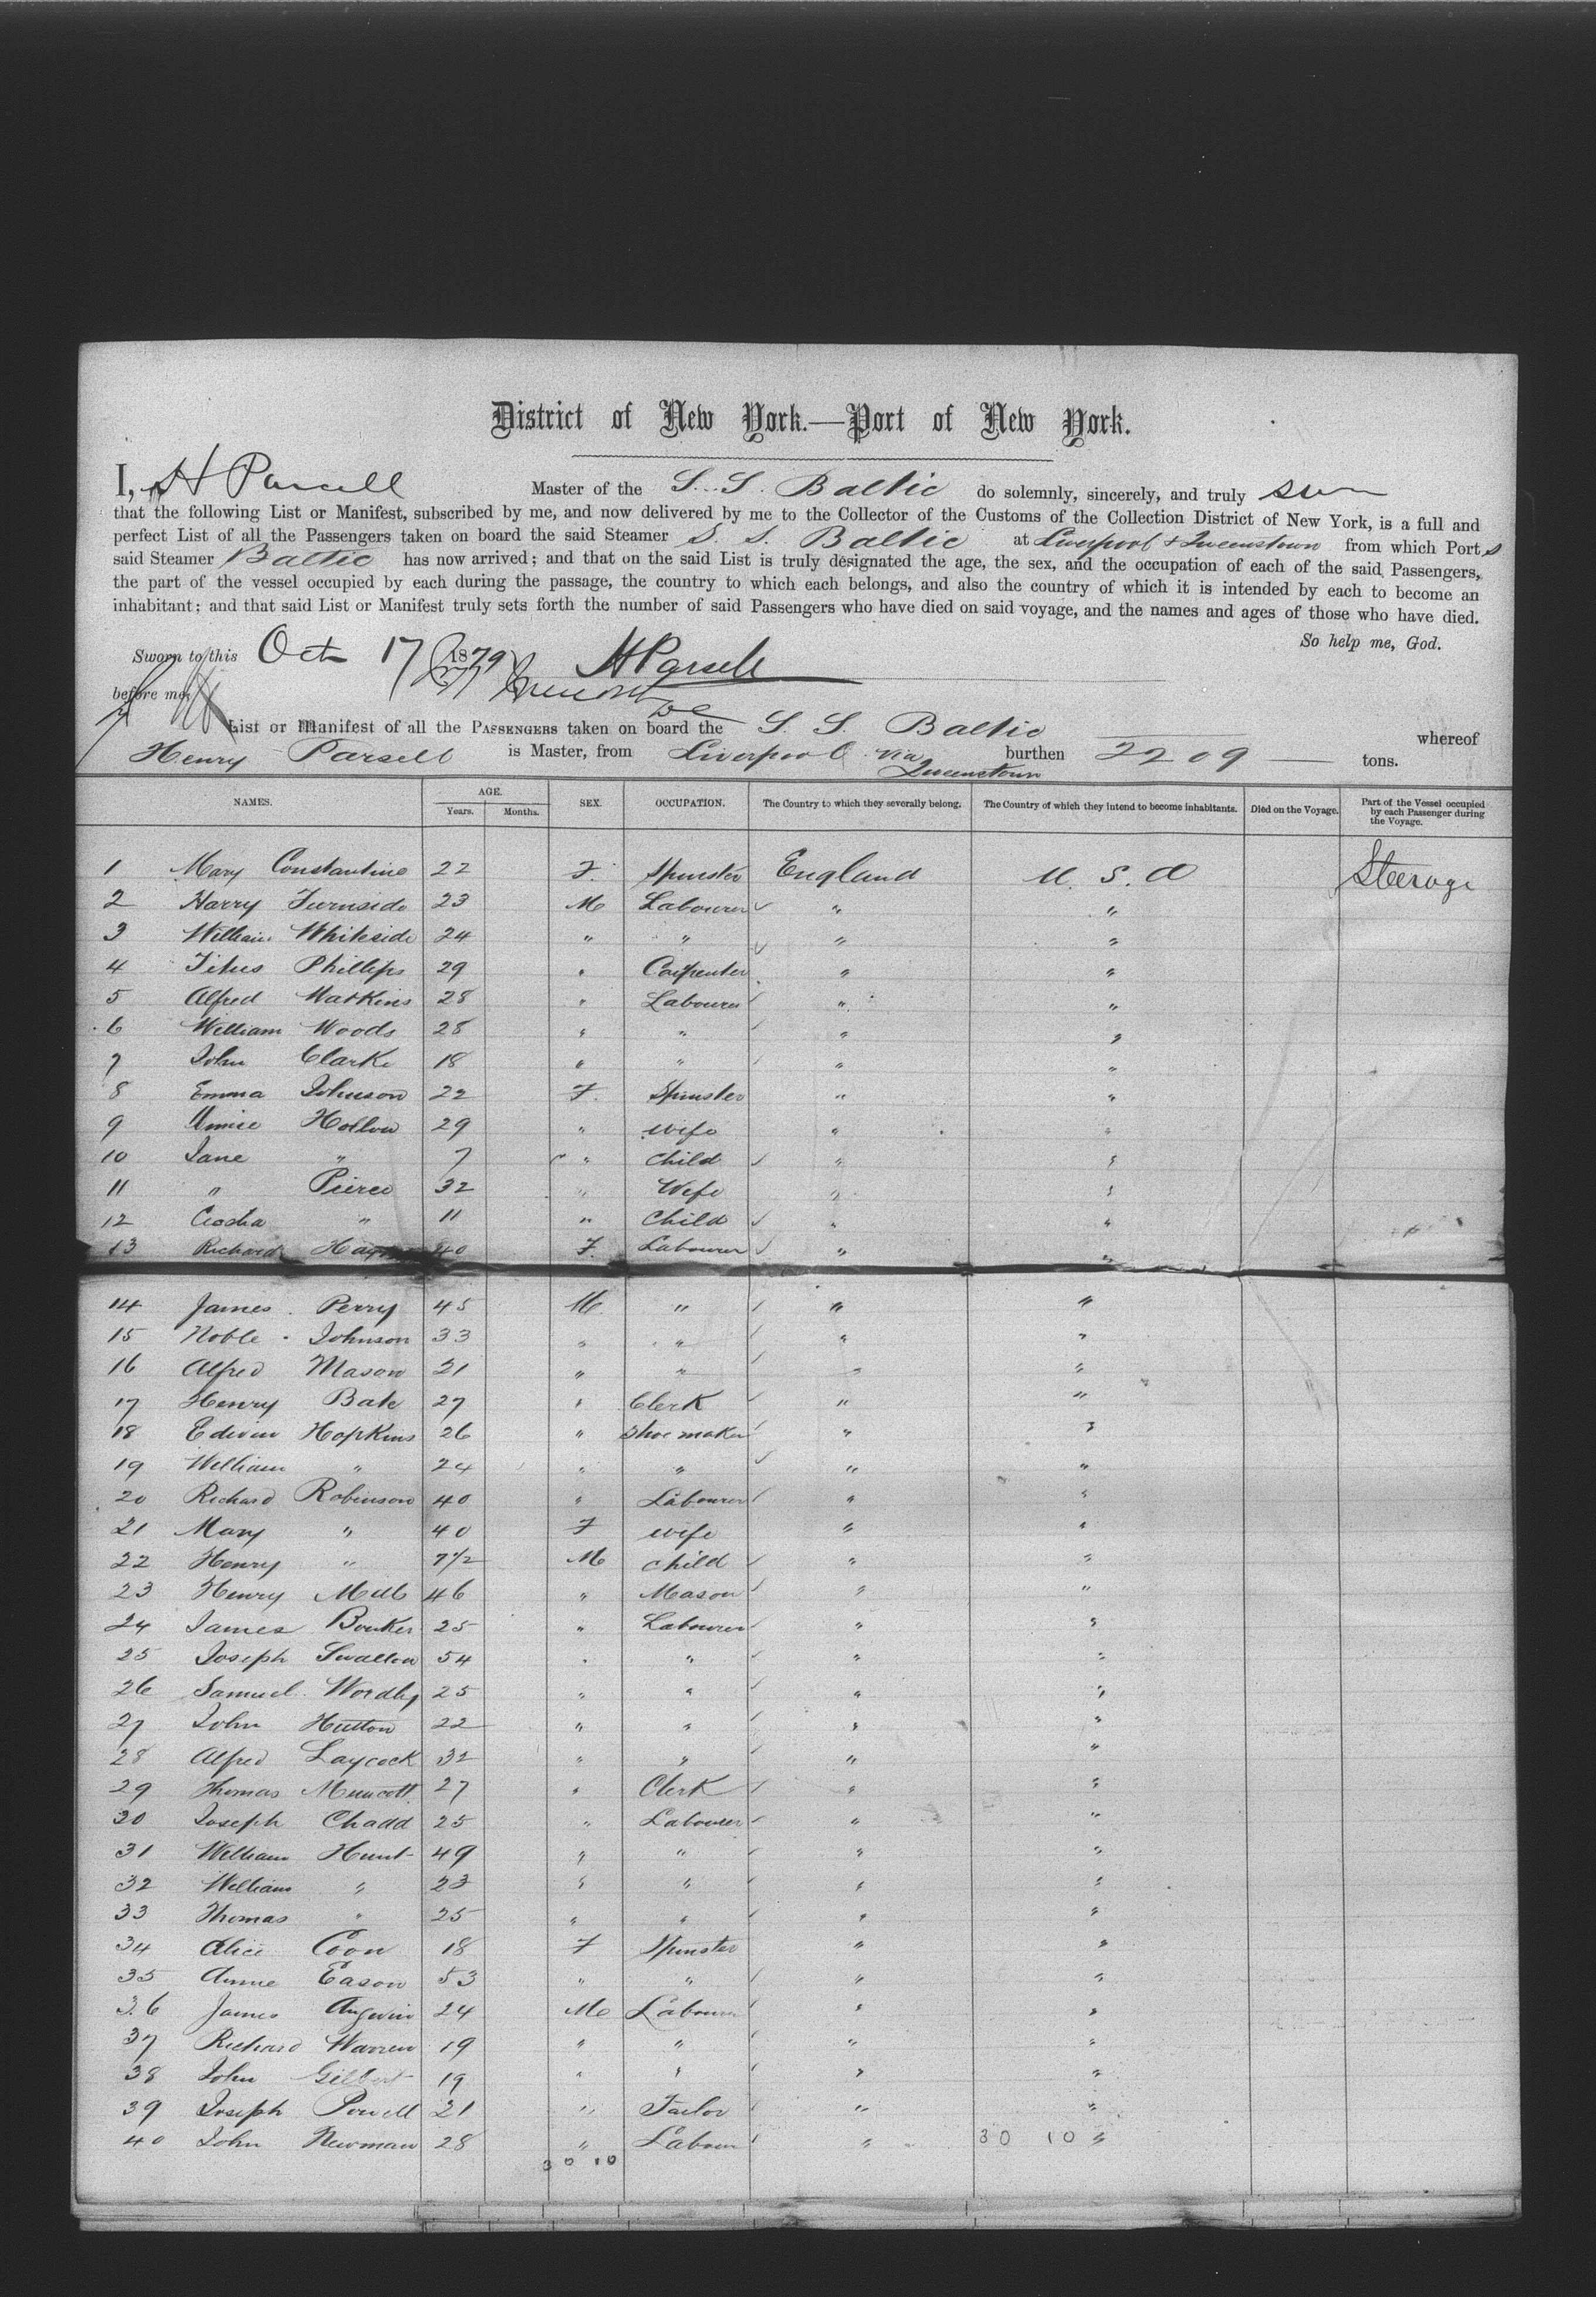 District of New York.—Port of New York.
I, H Parsell Master of the S.S. Baltic do solemnly, sincerely, and truly
that the following List or Manifest, subscribed by me, and now delivered by me to the Collector of the Customs of the Collection District of New York, is a full and
perfect List of all the Passengers taken on board the said Steamer S. S. Baltic at Liverpool & Queenstown from which Port s
said Steamer Baltic has now arrived; and that on the said List is truly designated the age, the sex, and the occupation of each of the said Passengers,
the part of the vessel occupied by each during the passage, the country to which each belongs, and also the country of which it is intended by each to become an
inhabitant; and that said List or Manifest truly sets forth the number of said Passengers who have died on said voyage, and the names and ages of those who have died.
So help me, God.
Sworn to this Oct 17 1879 H Parsell
before me
List or Manifest of all the PASSENGERS taken on board the S. S. Baltic whereof
Henry Parsell is Master, from Liverpool via Queenstown burthen 2209 tons.
NAMES. AGE. Years. Months. SEX. OCCUPATION. The Country to which they severally belong. The Country of which they intend to become inhabitants. Died on the Voyage. Part of the Vessel occupied by each Passenger during the Voyage.
1 Mary Constantine 22 F. Spinster England U. S. A Steerage
2 Harry Furnside 23 M Labourer " "
3 William Whiteside 24 " " " "
4 Titus Phillips 29 " Carpenter " "
5 Alfred Watkins 28 " Labourer " "
6 William Woods 28 " " " "
7 John Clarke 18 " " " "
8 Emma Johnson 22 F. Spinster " "
9 Hollow 29 " wife " "
10 Jane " 7 " child " "
11 " Pierce 32 " Wife " "
12 " 11 " Child " "
13 Richard 40 F. Labourer " "
14 James Perry 45 M " " "
15 Noble Johnson 33 " " " "
16 Alfred Mason 21 " " " "
17 Henry Bate 27 " Clerk " "
18 Edwin Hopkins 26 " Shoe maker " "
19 William " 24 " " " "
20 Richard Robinson 40 " Labourer " "
21 Mary " 40 F wife " "
22 Henry " 7½ M child " "
23 Henry 46 " Mason " "
24 James 25 " Labourer " "
25 Joseph Swallow 54 " " " "
26 Samuel 25 " " " "
27 John Hutton 22 " " " "
28 Alfred Laycock 32 " " " "
29 Thomas 27 " Clerk " "
30 Joseph Chadd 25 " Labourer " "
31 William Hunt 49 " " " "
32 William " 23 " " " "
33 Thomas " 25 " " " "
34 Alice Coon 18 F Spinster " "
35 Annie Eason 53 " " " "
36 James Angwin 24 M Labourer " "
37 Richard Warren 19 " " " "
38 John Gilbert 19 " " " "
39 Joseph Powell 21 " Tailor " "
40 John Newman 28 " Labour " 30 10 "
30 10